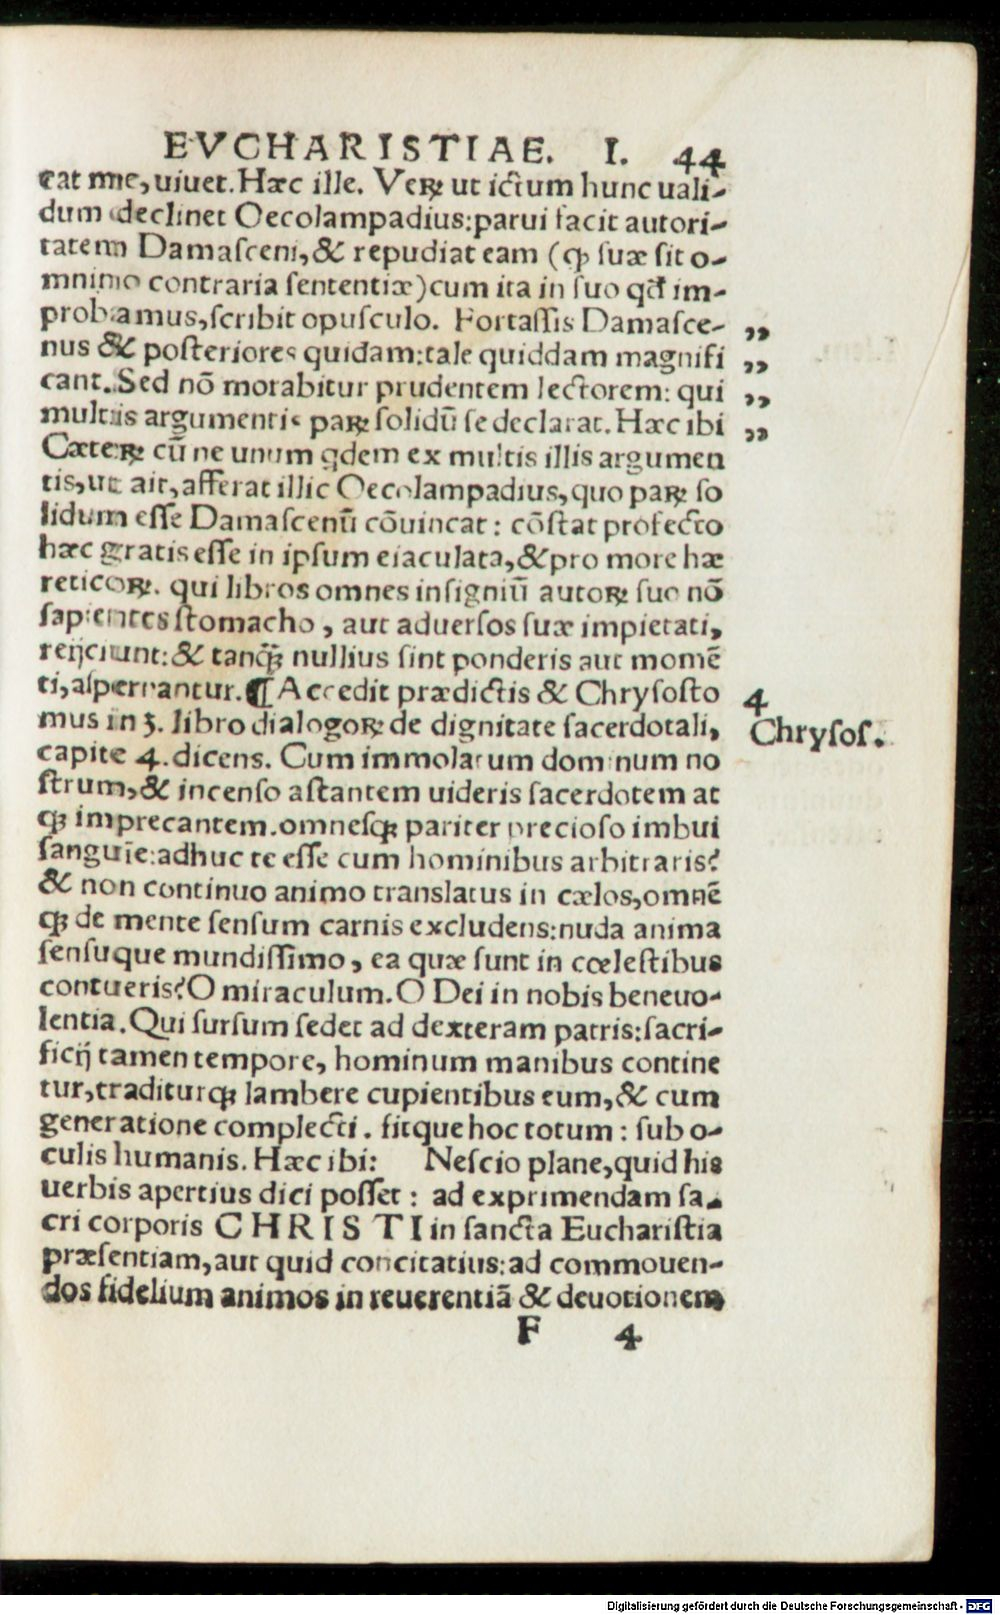 EVCHARISTIAE. I. 44
eat me, uiuet. Hæc ille. Veꝝ ut ictum hunc uali-
dum declinet Oecolampadius: parui facit autori-
tatem Damasceni, & repudiat eam (ꝙ suæ sit o-
mnino contraria sententiæ) cum ita in suo qđ im-
probamus, scribit opusculo. Fortassis Damasce- „
nus & posteriores quidam: tale quiddam magnifi „
cant. Sed nõ morabitur prudentem lectorem: qui „
multis argumentis paꝝ solidũ se declarat. Hæc ibi „
Cæteꝝ cũ ne unum qdem ex multis illis argumen
tis, ut ait, afferat illic Oecolampadius, quo paꝝ so
lidum esse Damascenũ cõuincat: cõstat profecto
hæc gratis esse in ipsum eiaculata, & pro more hæ
reticoꝝ. qui libros omnes insigniũ autoꝝ suo nõ
sapientes stomacho, aut aduersos suæ impietati,
reijciunt: & tanq̃ꝫ nullius sint ponderis aut momẽ
ti, aspernantur. ¶ Accedit prædictis & Chrysosto
4
mus in 3. libro dialogoꝝ de dignitate sacerdotali,
Chrysos.
capite 4. dicens. Cum immolatum dominum no
strum, & incenso astantem uideris sacerdotem at
qꝫ imprecantem. omnesqꝫ pariter precioso imbui
sanguĩe: adhuc te esse cum hominibus arbitraris?
& non continuo animo translatus in cælos, omnẽ
qꝫ de mente sensum carnis excludens: nuda anima
sensuque mundissimo, ea quæ sunt in cœlestibus
contueris? O miraculum. O Dei in nobis beneuo-
lentia. Qui sursum sedet ad dexteram patris: sacri-
ficij tamen tempore, hominum manibus contine
tur, traditurqꝫ lambere cupientibus eum, & cum
generatione complecti. fitque hoc totum: sub o-
culis humanis. Hæc ibi: Nescio plane, quid his
uerbis apertius dici posset: ad exprimendam sa-
cri corporis CHRISTI in sancta Eucharistia
præsentiam, aut quid concitatius: ad commouen-
dos fidelium animos in reuerentiã & deuotionem
F 4
Digitalisierung gefördert durch die Deutsche Forschungsgemeinschaft - DFG